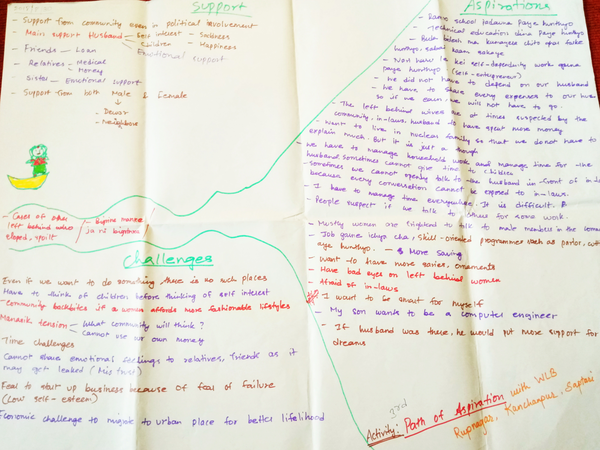 Support
- Support from community even in political involvement
- Main support Husband
Self interest - Sadness
Children - Happiness
Emotional support
- Friends - Loan
- Relatives - Medical
Money
Sister - Emotional support
- Support from both Male & Female
- Dewar
- Neighbour
- Cases of other left behind who eloped, spoilt
- bigrine manche ja ni bigrincha
Challenges
Even if we want to do something there is no such places
Have to think of children before thinking of self interest
- Community backbites if a woman affords more fashionable lifestyles
Manasik tension
What community will think?
Cannot use our own money
Time challenges
Cannot share emotional feelings to relatives, friends as it
may get leaked (Mistrust)
Fear to start up business because of fear of failure
(Low self-esteem)
Economic challenge to migrate to urban place for better livelihood
Aspirations
- Ramro school padauna paye hunthyo
- Technical education dina paye hunthyo
- kaam sakaye
- self-dependency work garna
paye hunthyo (self-entrepreneur)
- We did not have to depend on our husband
- We have to share every expenses to our
so if we earn we will not have to go.
- The left behind wives are at times suspected by the
community, in-laws, husband to have spent more money
- Want to live in nuclear family so that we do not have to
explain much. But it is just a though
- We have to manage household work and manage time for the
husband, sometimes cannot give time to children
- Sometimes we cannot openly talk to the husband in-front of in-
because every conversation cannot be exposed to in-laws.
- I have to manage time everywhere. It is difficult.
- People suspect if we talk to others for some work.
- Mostly women are frightened to talk to male members in the
- Job garne ichya cha, skill-oriented programmes such as parlor,
aye hunthyo. - More saving
- Want to have more saries, ornaments
- Have bad eyes on left behind women
- Afraid of in-laws
- I want to be smart for myself
- My son wants to be a computer engineer
- If husband was there, he would put more support for
dreams
3rd
Activity: Path of Aspiration with WLB
Rupnagar, Kanchanpur, Saptari